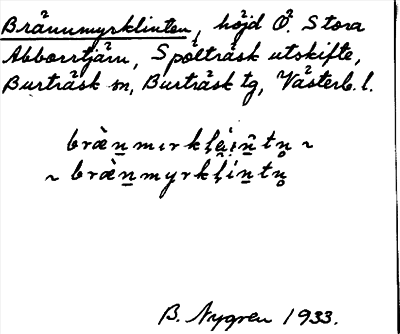 Brännmyrklinten, höjd Ö. Stora
Abborrtjärn, Spölträsk utskifte,
Burträsk sn, Burträsk tg, Västerb. l.
bræ̀n̲mırkḷǽ̣ıñ̲tn̥ ~
~ bræ̀n̲myrkḷín̲tn̥
B. Nygren 1933.